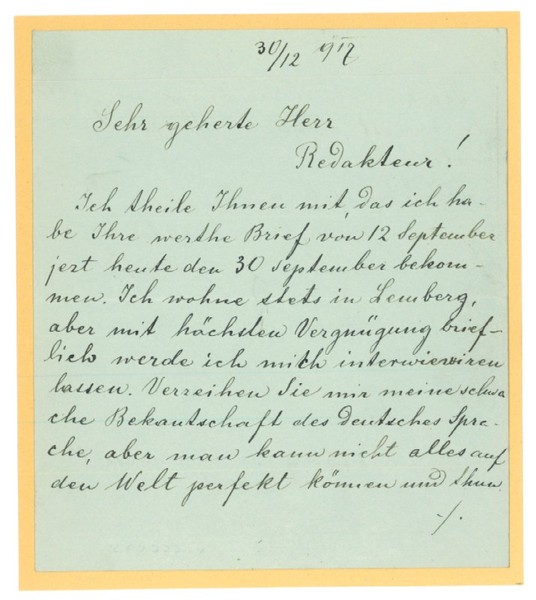 30/12 917
Sehr geherte Herr
Redakteur!
Ich theile Ihnen mit, das ich ha-
be Ihre werthe Brief von 12 September
jezt heute den 30 September bekom-
men. Ich wohne stets in Lemberg,
aber mit höchsten Vergnügung brief-
lich werde ich mich interwiewiren
lassen. Verzeihen Sie mir meine schwa
che Bekantschaft des Deutsches Spra-
che, aber man kann nicht alles auf
den Welt perfekt können und thun.
-/.